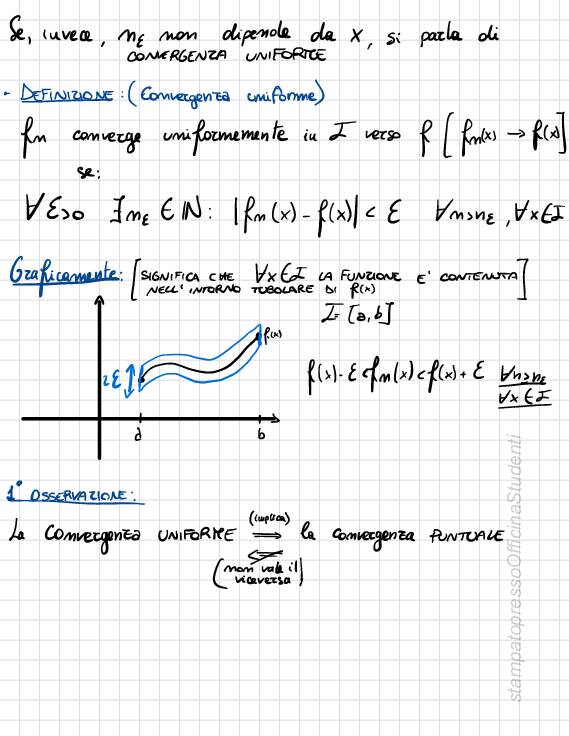 Se, invece, nε non dipende da x, si parla di
CONVERGENZA UNIFORME
- DEFINIZIONE: (Convergenza uniforme)
fn converge uniformemente in I verso f [fn(x) → f(x)]
se:
∀ε>0 ∃nε ∈ ℕ: |fn(x) - f(x)| < ε ∀n>nε, ∀x∈I
Graficamente: [SIGNIFICA CHE ∀x∈I LA FUNZIONE E' CONTENUTA
NELL'INTORNO TUBOLARE DI f(x)]
I=[a,b]
f(x)
2ε
f(x)-ε<fn(x)<f(x)+ε ∀n>nε
∀x∈I
a b
1° OSSERVAZIONE:
La convergenza UNIFORME ⟹ (implica) la convergenza PUNTUALE
⟸̸
(non vale il
viceversa)
stampatopressoOfficinaStudenti